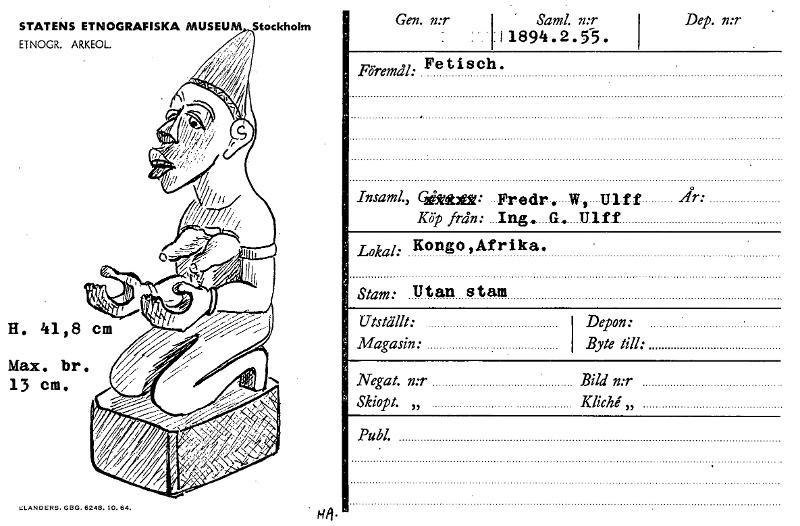 STATENS ETNOGRAFISKA MUSEUM, Stockholm
ETNOGR. ARKEOL.
H. 41,8 cm
Max. br.
13 cm.
ELANDERS, GBG. 6248. 10. 64.
HA.
Gen. n:r Saml. n:r Dep. n:r
1894.2.55.
Föremål: Fetisch.
Insaml., Gåva av: Fredr. W, Ulff År:
Köp från: Ing. G. Ulff
Lokal: Kongo,Afrika.
Stam: Utan stam
Utställt: Depon:
Magasin: Byte till:
Negat. n:r Bild n:r
Skiopt. „ Kliché „
Publ.